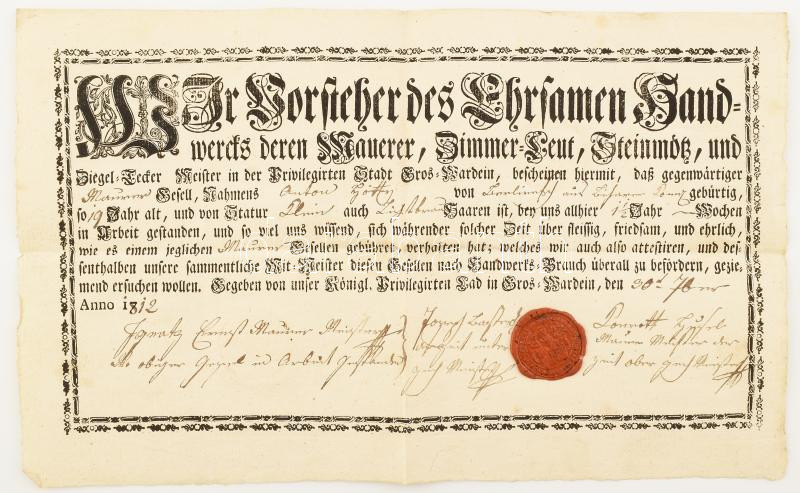 Wir Vorsteher des Ehrsamen Hand-
wercks deren Mauerer, Zimmer-Leut, Steinmötz, und
Ziegel-Decker Meister in der Privilegirten Stadt Gros-Wardein, bescheinen hiermit, daß gegenwärtiger
Maurer Gesell, Nahmens Anton von gebürtig,
so 19 Jahr alt, und von Statur Klein auch Haaren ist, bey uns allhier 1½ Jahr Wochen
in Arbeit gestanden, und so viel uns wissend, sich während solcher Zeit über fleissig, friedsam, und ehrlich,
wie es einem jeglichen Maurer Gesellen gebühret, verhalten hat; welches wir auch also attestiren, und des-
senthalben unsere sammentliche Mit-Meister diesen Gesellen nach Handwercks-Brauch überall zu befördern, gezie-
mend ersuchen wollen. Gegeben von unser Königl. Privilegirten Lad in Gros-Wardein, den 30t 7ber
Anno 1812
Ignatz Ernst Maurer Meister Joseph
bey obiger Gesell in Arbeit gestanden